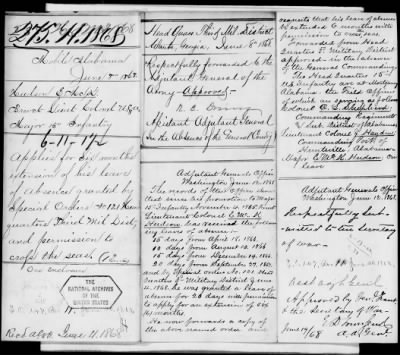 275. H. 1868
Mobile Alabama
June 1868
Brevet Lieut. Colonel U.S.A.
Major 15" Infantry
6-11-172
Applies for six months
extension of his leave
of absence granted by
Special Orders No 121 Head
quarters Third Mil Dist,
and permission to
cross the seas.
One enclosure
THE
NATIONAL ARCHIVES
OF THE
UNITED STATES
Rec'd above June 11. 1868
Head Qrs Third Mil. District
Atlanta, Georgia, June 8" 1868
Respectfully forwarded to the
Adjutant General of the
Army - Approved -
Assistant Adjutant General
(In the absence of the General Comdg)
Adjutant Generals Office
Washington June 12. 1868
The records of this Office show
that since his promotion to Major
15" Infantry
Lieutenant Colonel E. McK
Hudson has received the following
leaves of absence -
15 days from April 18. 1866
10 days from August 12. 1866
15 days from December 14. 1866
20 days from September 27. 1867
and by Special orders No. 121 Head
quarters 3" Military District June
4. 1868. he was granted a leave of
absence for 20 days with permission
to apply for an extension of six
(6) months
No. 121 forwards a copy of
the above named order and
requests that his leave of absence
be extended 6 months with
permission to cross the seas
Forwarded from Head
Quarters 3" Military District
approved in the absence
of the General Commanding
The Head Quarters 15th
U.S. Infantry are at Mobile
Alabama the Field Officers
of which are serving as follows
Colonel O. L. Shepherd
Commanding Regiment
& Sub. District of Alabama
Lieutenant Colonel J. Hayden
Commanding Post of
Huntsville Alabama
Major E. McK. Hudson on
leave
Adjutant Generals Office
Washington June 12. 1868
Respectfully sub-
mitted to the Secretary
of War -
Approved by Gen. Grant
Secretary of War
June 14/68
A. A. Genl.